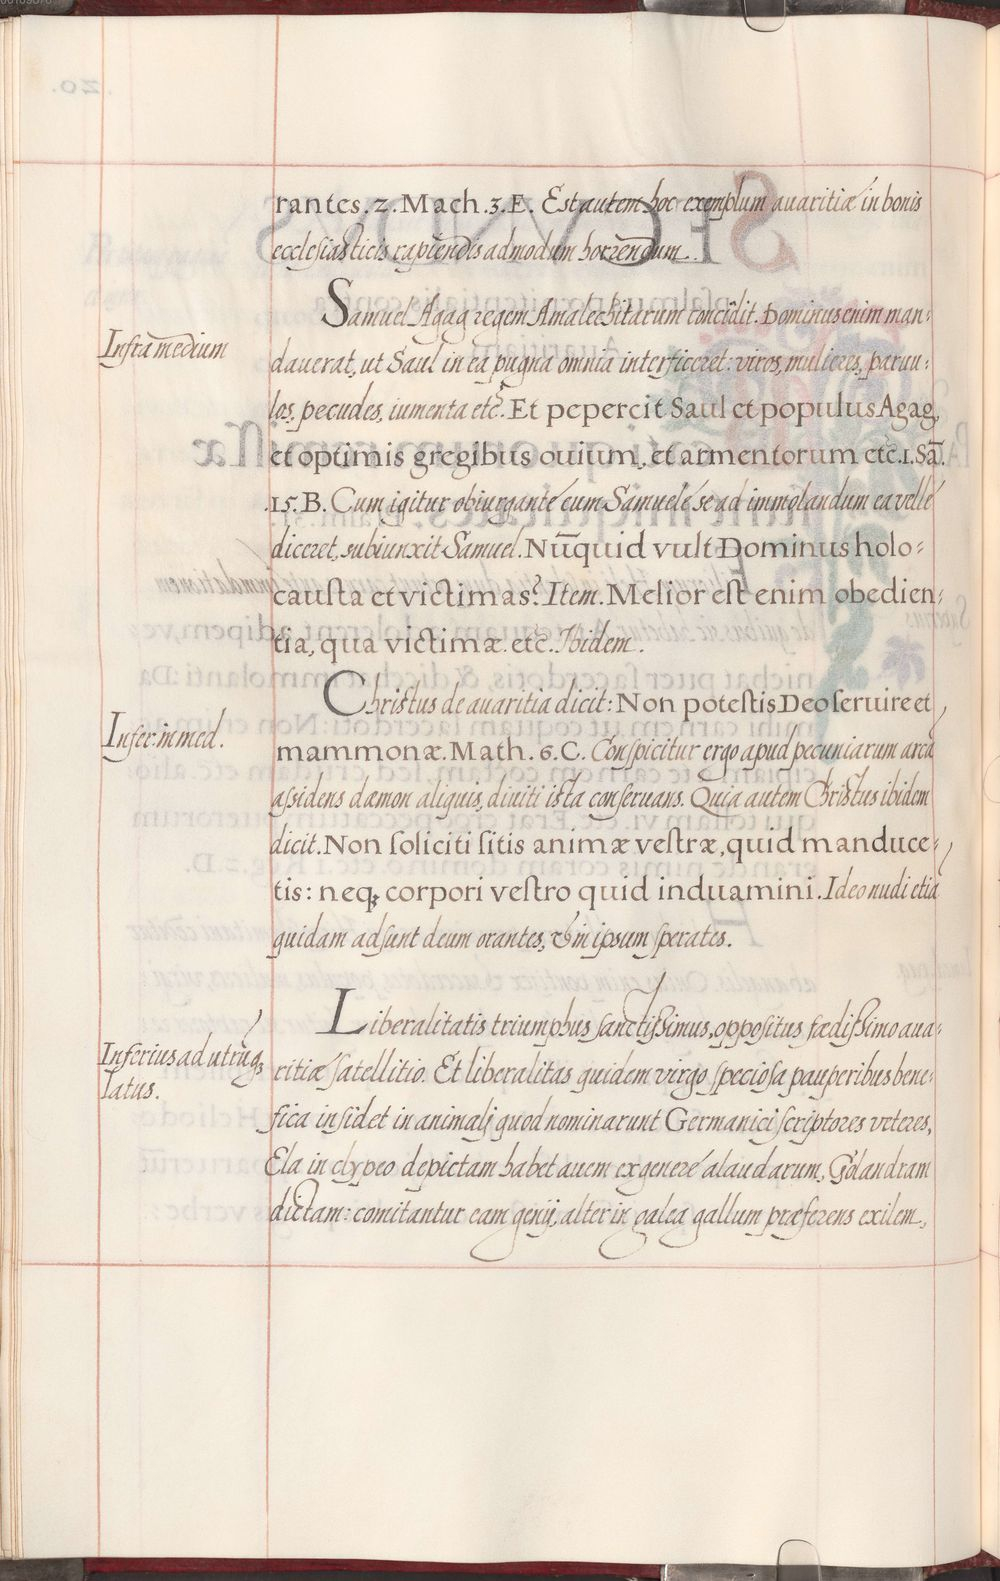 rantes. 2. Mach. 3. E. Est autem hoc exemplum auaritiæ in bonis
ecclesiasticis rapiendis admodum horrendum.
Infra medium
Samuel Agag regem Amalechitarum concidit. Dominus enim man-
dauerat, ut Saul in ea pugna omnia interficeret: viros, mulieres, paruu-
los, pecudes, iumenta etc. Et pepercit Saul et populus Agag,
et optimis gregibus ouium, et armentorum etc. 1. Sā.
15. B. Cum igitur obiurgante eum Samuele se ad immolandum ea velle
diceret, subiunxit Samuel. Nūquid vult Dominus holo-
causta et victimas? Item. Melior est enim obedien-
tia, qua victimæ. etc. Ibidem.
Infer. in med.
Christus de auaritia dicit: Non potestis Deo seruire et
mammonæ. Math. 6. C. Conspicitur ergo apud pecuniarum arcā
assidens dæmon aliquis, diuiti ista conseruans. Quia autem Christus ibidem
dicit. Non soliciti sitis animæ vestræ, quid manduce-
tis: neqꝫ corpori vestro quid induamini. Ideo nudi etiā
quidam adsunt deum orantes, & in ipsum sperātes.
Inferius ad utrūqꝫ
latus.
Liberalitatis triumphus sanctissimus, oppositus fœdissimo aua-
ritiæ satellitio. Et liberalitas quidem virgo speciosa pauperibus bene-
fica insidet in animali quod nominarunt Germanici scriptores veteres,
Ela in clypeo depictam habet auem ex genere alaudarum, Golandram
dictam: comitantur eam genij, alter in galea gallum præferens exilem,
20.